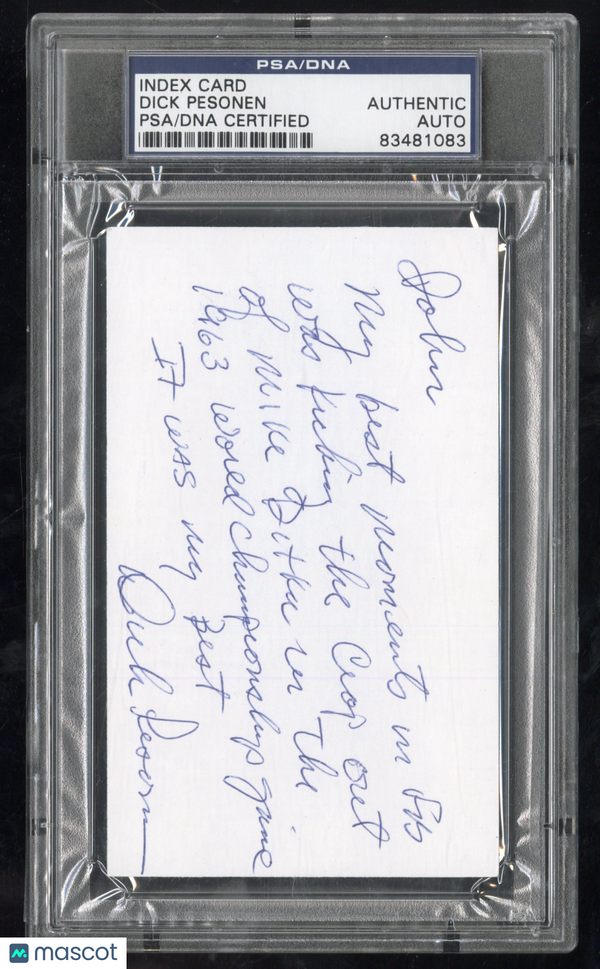 PSA/DNA
INDEX CARD
DICK PESONEN
PSA/DNA CERTIFIED
AUTHENTIC
AUTO
83481083
John
My best moments in
was kicking the Crap out
of Mike Ditka in the
1963 World Championship game
It was my Best
Dick Pesonen
mascot